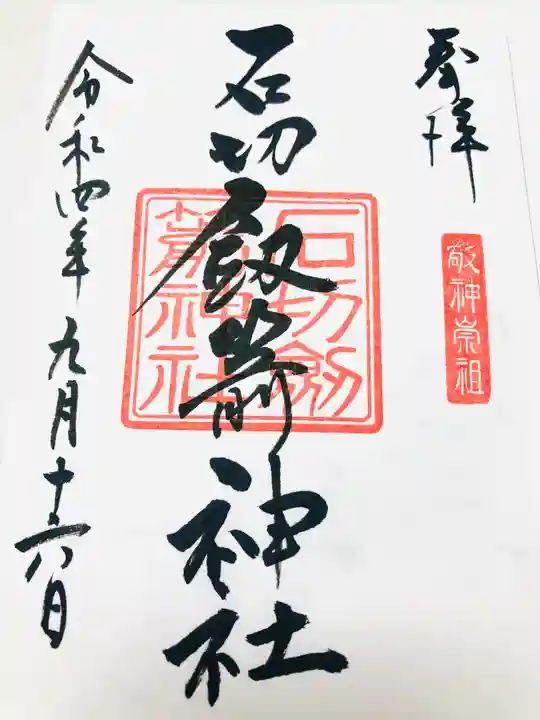 奉拝
敬神崇祖
石切劔箭神社
石切劍
箭神社
令和四年九月十六日